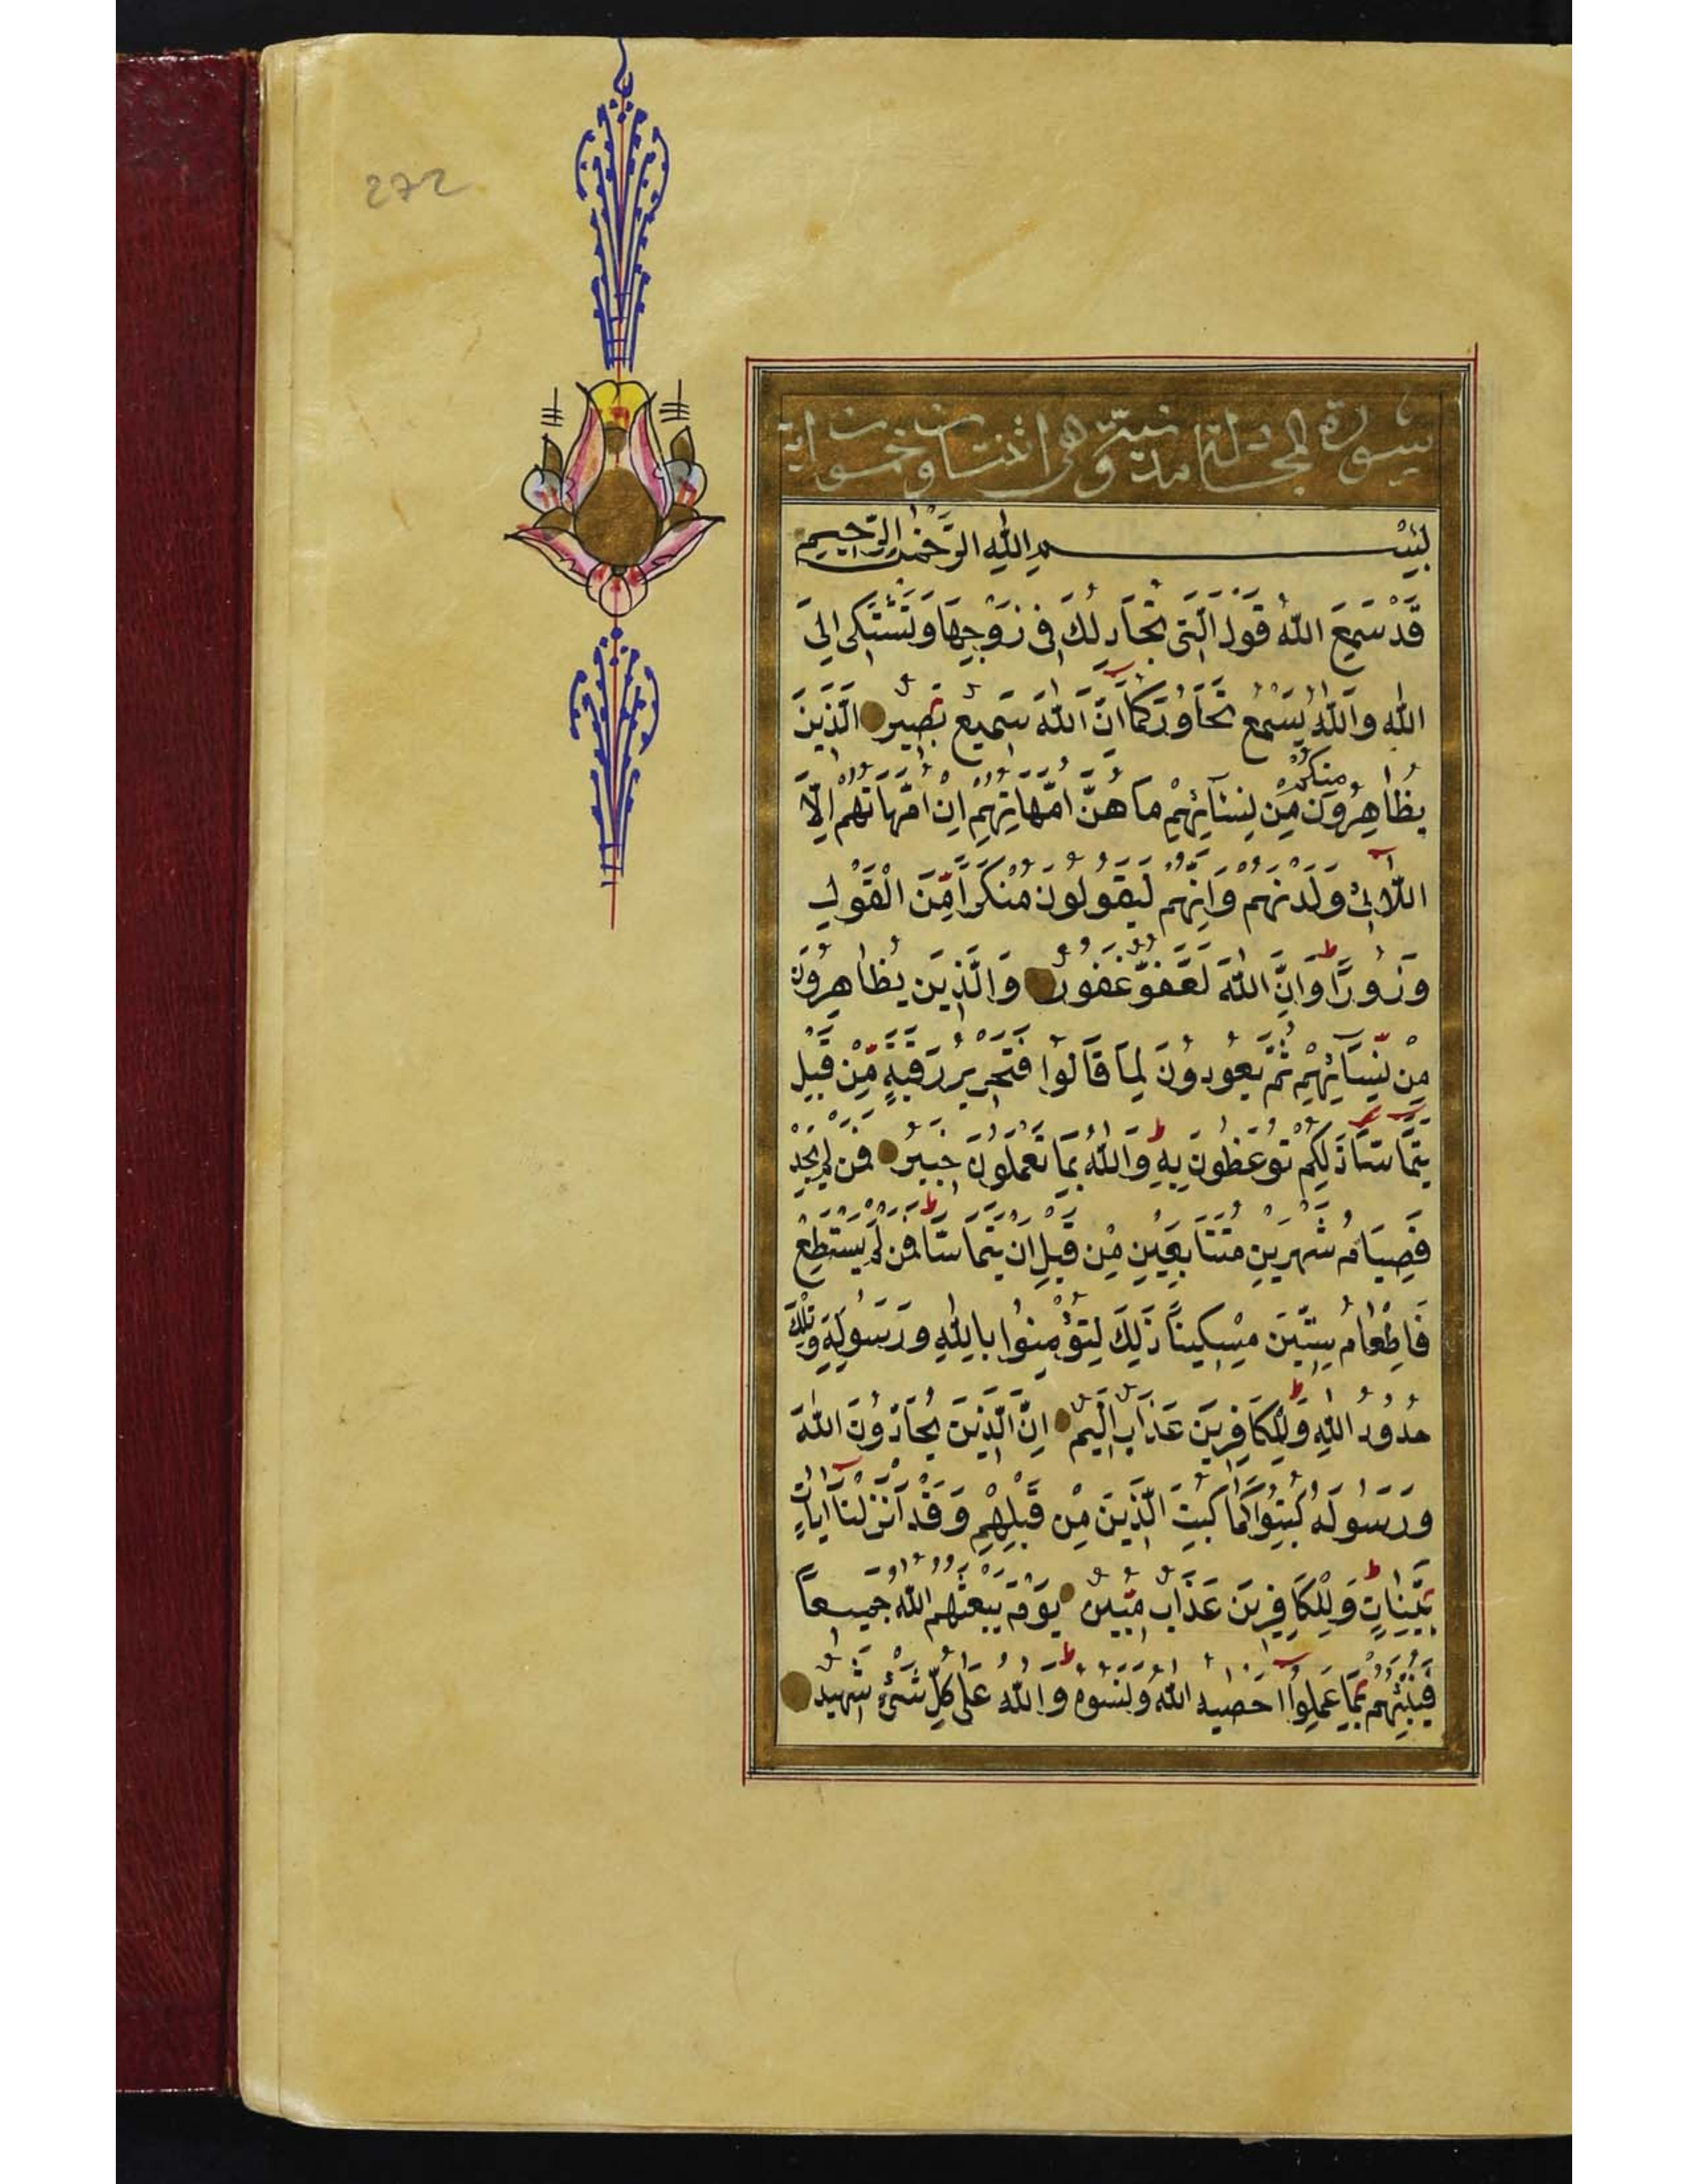 272
سورة المجادلة مدنية وهى اثنتان وخمسون اية
بِسْمِ اللهِ الرَّحْمٰنِ الرَّحِيمِ
قَدْ سَمِعَ اللهُ قَوْلَ الَّتِى تُجَادِلُكَ فِى زَوْجِهَا وَتَشْتَكِى اِلَى
اللهِ وَاللهُ يَسْمَعُ تَحَاوُرَكُمَا اِنَّ اللهَ سَمِيعٌ بَصِيرٌ الَّذِينَ
يُظَاهِرُونَ مِنْكُمْ مِنْ نِسَآئِهِمْ مَا هُنَّ اُمَّهَاتِهِمْ اِنْ اُمَّهَاتُهُمْ اِلَّا
اللَّآئِىْ وَلَدْنَهُمْ وَاِنَّهُمْ لَيَقُولُونَ مُنْكَرًا مِّنَ الْقَوْلِ
وَزُورًا وَاِنَّ اللهَ لَعَفُوٌّ غَفُورٌ وَالَّذِينَ يُظَاهِرُونَ
مِنْ نِّسَآئِهِمْ ثُمَّ يَعُودُونَ لِمَا قَالُوا فَتَحْرِيرُ رَقَبَةٍ مِّنْ قَبْلِ
يَتَمَآسَّا ذٰلِكُمْ تُوعَظُونَ بِهِ وَاللهُ بِمَا تَعْمَلُونَ خَبِيرٌ فَمَنْ لَمْ يَجِدْ
فَصِيَامُ شَهْرَيْنِ مُتَتَابِعَيْنِ مِنْ قَبْلِ اَنْ يَتَمَآسَّا فَمَنْ لَمْ يَسْتَطِعْ
فَاِطْعَامُ سِتِّينَ مِسْكِينًا ذٰلِكَ لِتُؤْمِنُوا بِاللهِ وَرَسُولِهِ وَتِلْكَ
حُدُودُ اللهِ وَلِلْكَافِرِينَ عَذَابٌ اَلِيمٌ اِنَّ الَّذِينَ يُحَآدُّونَ اللهَ
وَرَسُولَهُ كُبِتُوا كَمَا كُبِتَ الَّذِينَ مِنْ قَبْلِهِمْ وَقَدْ اَنْزَلْنَآ اٰيَاتٍ
بَيِّنَاتٍ وَلِلْكَافِرِينَ عَذَابٌ مُّهِينٌ يَوْمَ يَبْعَثُهُمُ اللهُ جَمِيعًا
فَيُنَبِّئُهُمْ بِمَا عَمِلُوآ اَحْصٰيهُ اللهُ وَنَسُوهُ وَاللهُ عَلٰى كُلِّ شَىْءٍ شَهِيدٌ